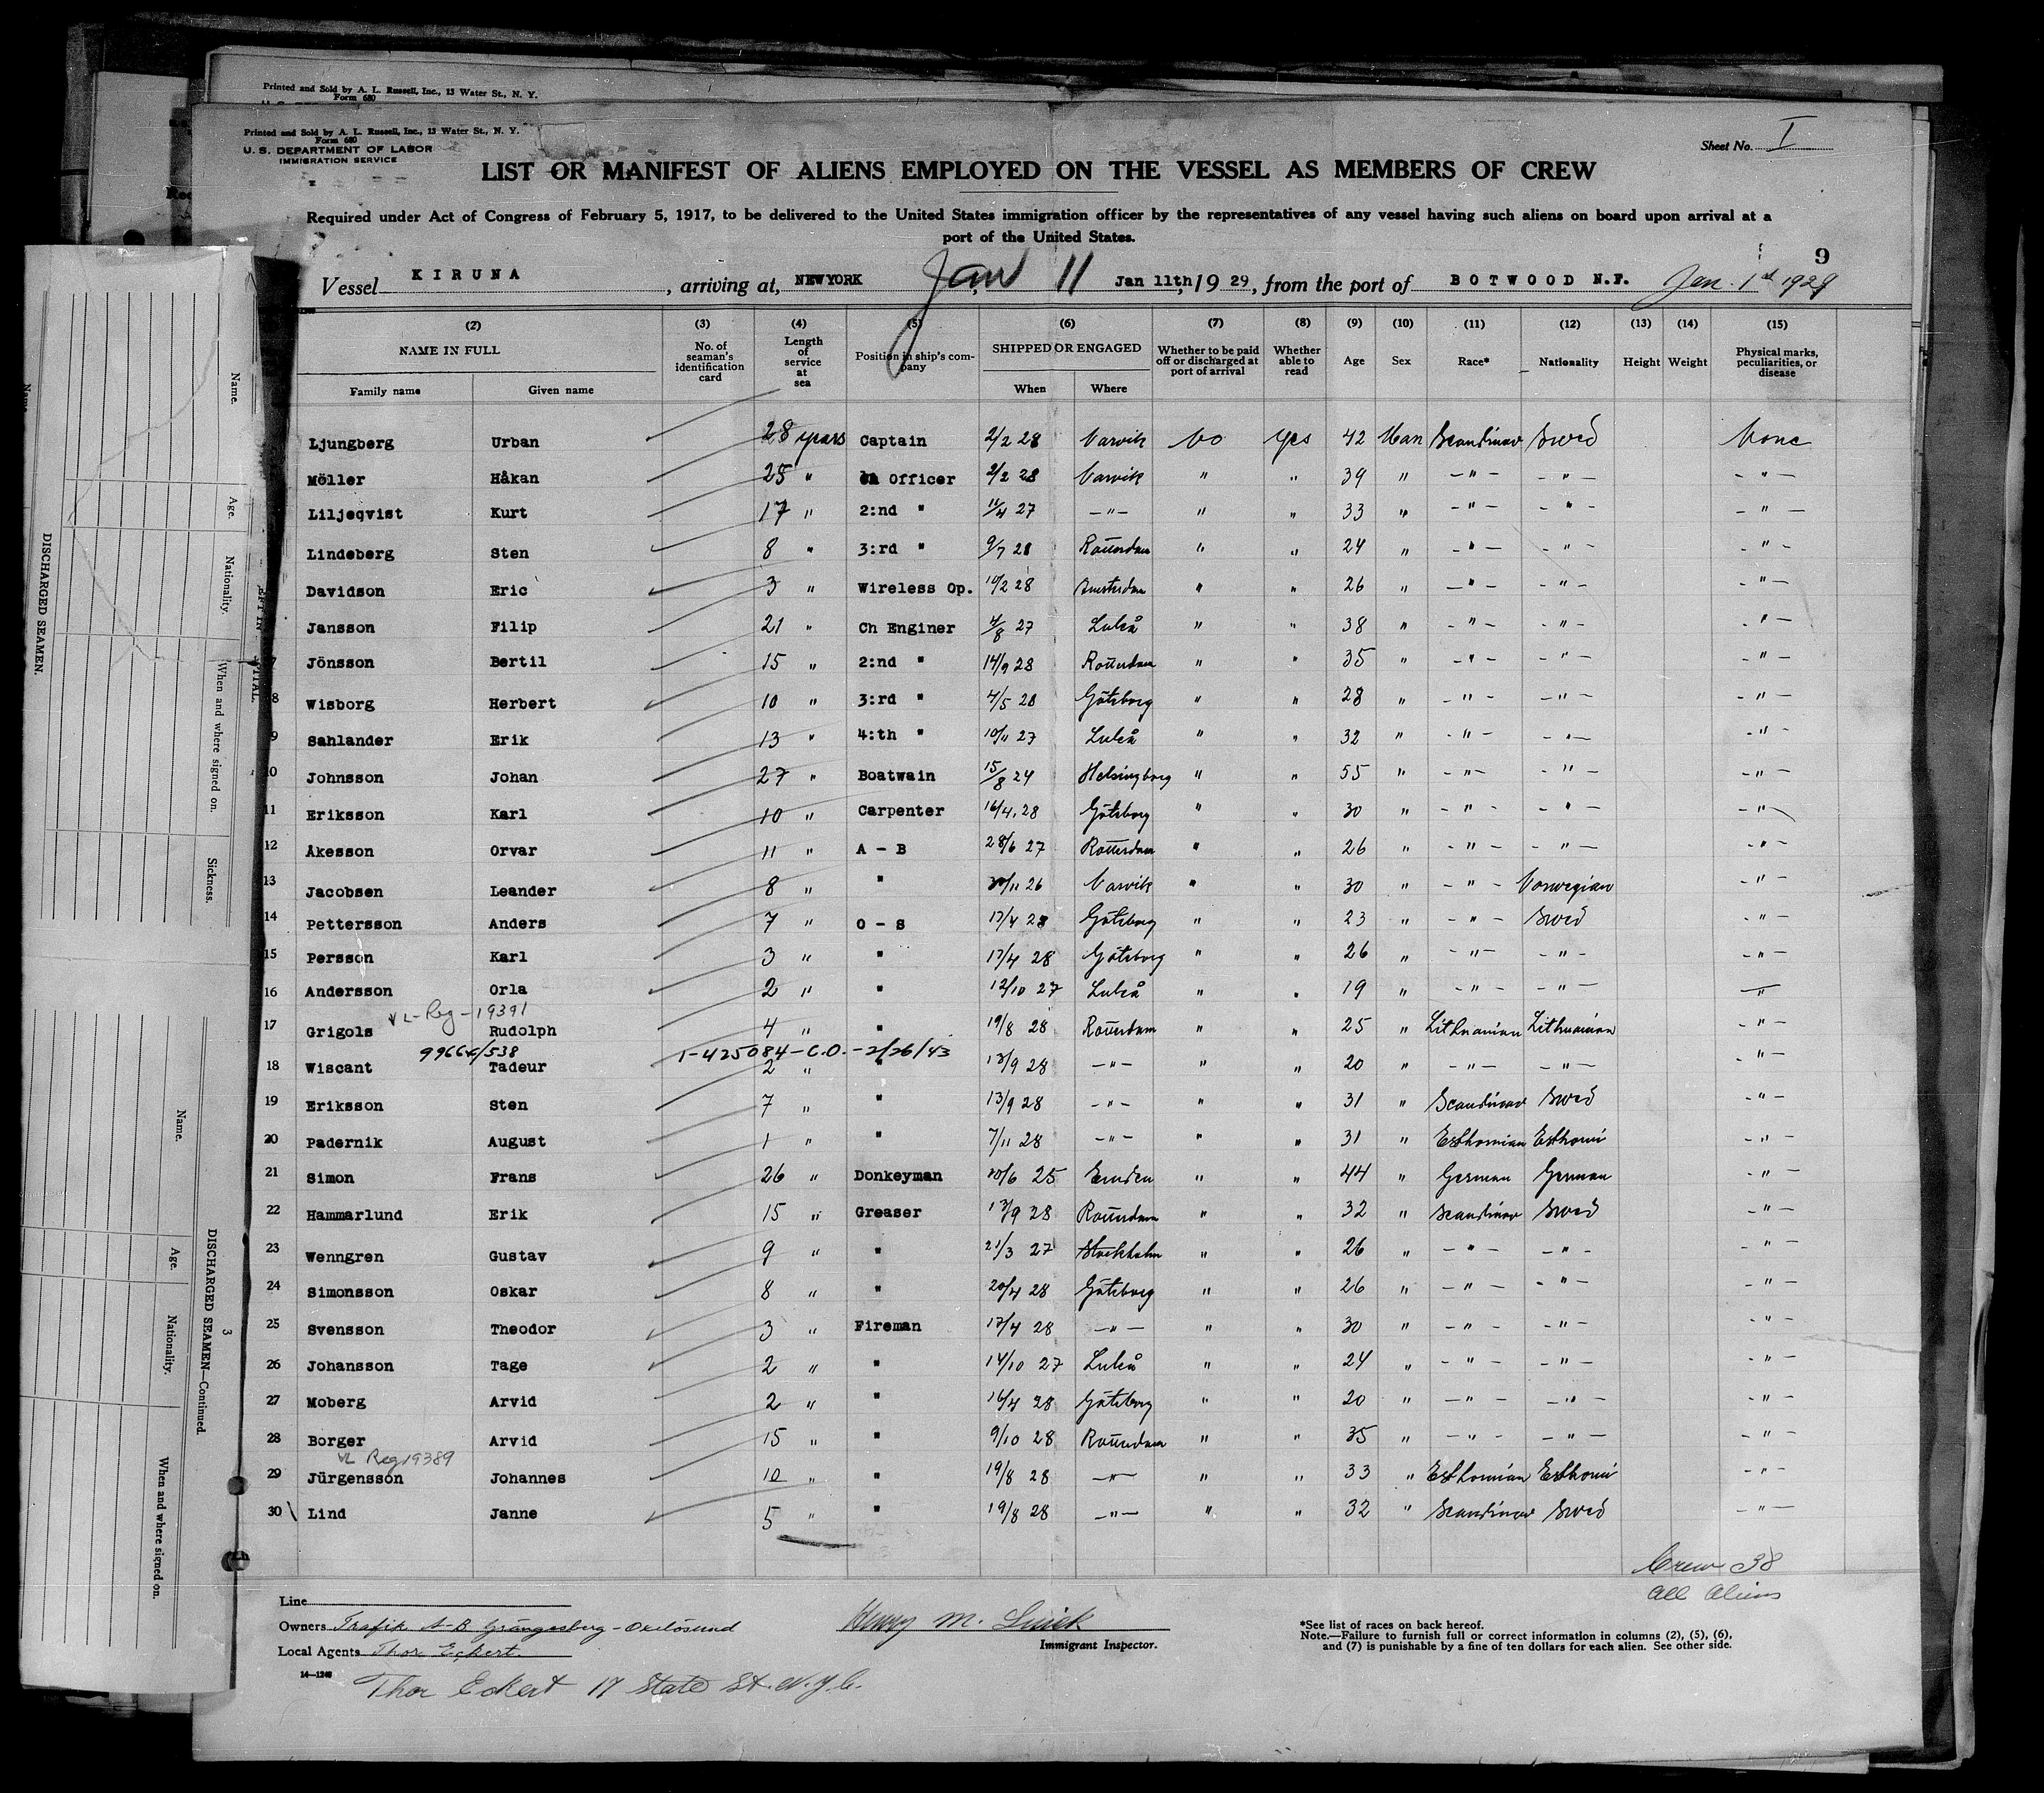 Printed and Sold by A. L. Russell, Inc., 13 Water St., N. Y.
Form 680
Printed and Sold by A. L. Russell, Inc., 12 Water St., N. Y.
Form 680
U. S. DEPARTMENT OF LABOR
IMMIGRATION SERVICE
Sheet No. I
LIST OR MANIFEST OF ALIENS EMPLOYED ON THE VESSEL AS MEMBERS OF CREW
Required under Act of Congress of February 5, 1917, to be delivered to the United States immigration officer by the representatives of any vessel having such aliens on board upon arrival at a
port of the United States.
9
Vessel KIRUNA, arriving at, NEWYORK Jan 11 Jan 11th, 1929, from the port of BOTWOOD N.F. Jan. 1st 1929
(2) (3) (4) (5) (6) (7) (8) (9) (10) (11) (12) (13) (14) (15)
NAME IN FULL No. of seaman's identification card Length of service at sea Position in ship's company SHIPPED OR ENGAGED Whether to be paid off or discharged at port of arrival Whether able to read Age Sex Race* Nationality Height Weight Physical marks, peculiarities, or disease
Family name Given name When Where
Ljungberg Urban 28 years Captain 2/2 28 Narvik No Yes 42 Man Scandinav Swed None
Möller Håkan 25 " Ch Officer 2/2 28 Narvik " " 39 " -"- -"- -"-
Liljeqvist Kurt 17 " 2:nd " 11/4 27 -"- " " 33 " -"- -"- -"-
Lindeberg Sten 8 " 3:rd " 9/7 28 Rotterdam " " 24 " -"- -"- -"-
Davidson Eric 3 " Wireless Op. 10/2 28 Amsterdam " " 26 " -"- -"- -"-
Jansson Filip 21 " Ch Enginer 4/8 27 Luleå " " 38 " -"- -"- -"-
7 Jönsson Bertil 15 " 2:nd " 14/9 28 Rotterdam " " 35 " -"- -"- -"-
8 Wisborg Herbert 10 " 3:rd " 4/5 28 Göteborg " " 28 " -"- -"- -"-
9 Sahlander Erik 13 " 4:th " 10/11 27 Luleå " " 32 " -"- -"- -"-
10 Johnsson Johan 27 " Boatwain 15/8 24 Helsingborg " " 55 " -"- -"- -"-
11 Eriksson Karl 10 " Carpenter 16/4. 28 Göteborg " " 30 " -"- -"- -"-
12 Åkesson Orvar 11 " A - B 28/6 27 Rotterdam " " 26 " -"- -"- -"-
13 Jacobsen Leander 8 " " /11 26 Narvik " " 30 " -"- Norwegian -"-
14 Pettersson Anders 7 " O - S 17/4 28 Göteborg " " 23 " -"- Swed -"-
15 Persson Karl 3 " " 17/4 28 Göteborg " " 26 " -"- -"- -"-
16 Andersson Orla 2 " " 12/10 27 Luleå " " 19 " -"- -"- -"-
VL-Reg-19391
17 Grigols Rudolph 4 " " 19/8 28 Rotterdam " " 25 " Lithuanian Lithuanian -"-
99666/538 1-425084-C.O.-2/26/43
18 Wiscant Tadeur 2 " " 13/9 28 -"- " " 20 " -"- -"- -"-
19 Eriksson Sten 7 " " 13/9 28 -"- " " 31 " Scandinav Swed -"-
20 Padernik August 1 " " 7/11 28 -"- " " 31 " Esthonian Esthoni -"-
21 Simon Frans 26 " Donkeyman 20/6 25 Emden " " 44 " German German -"-
22 Hammarlund Erik 15 " Greaser 13/9 28 Rotterdam " " 32 " Scandinav Swed -"-
23 Wenngren Gustav 9 " " 21/3 27 Stockholm " " 26 " -"- -"- -"-
24 Simonsson Oskar 8 " " 20/4 28 Göteborg " " 26 " -"- -"- -"-
25 Svensson Theodor 3 " Fireman 17/4 28 -"- " " 30 " -"- -"- -"-
26 Johansson Tage 2 " " 14/10 27 Luleå " " 24 " -"- -"- -"-
27 Moberg Arvid 2 " " 16/4 28 Göteborg " " 20 " -"- -"- -"-
28 Borger Arvid 15 " " 9/10 28 Rotterdam " " 35 " -"- -"- -"-
VL Reg 19389
29 Jürgensson Johannes 10 " " 19/8 28 -"- " " 33 " Esthonian Esthoni -"-
30 Lind Janne 5 " " 19/8 28 -"- " " 32 " Scandinav Swed -"-
Crew 38
all Aliens
Line
Owners Trafik A-B Grängesberg-Oxelösund
Local Agents Thor Eckert.
Henry M.
Immigrant Inspector.
*See list of races on back hereof.
Note.—Failure to furnish full or correct information in columns (2), (5), (6),
and (7) is punishable by a fine of ten dollars for each alien. See other side.
14—1240
Thor Eckert 17 State St. N.Y.C.
DISCHARGED SEAMEN.
Name. Age. Nationality. When and where signed on. Sickness.
3
DISCHARGED SEAMEN—Continued.
Name. Age. Nationality. When and where signed on.